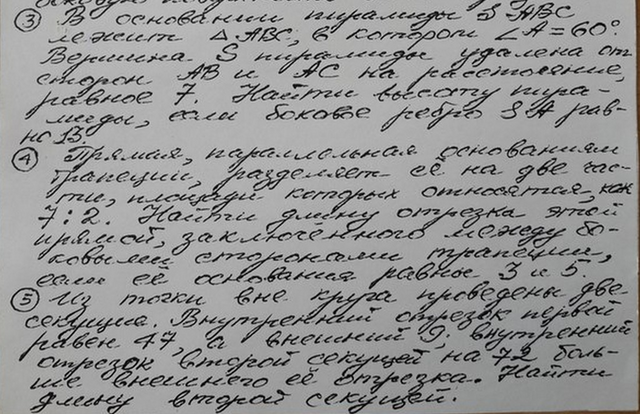 ③ В основании пирамиды SABC
лежит △ABC, в которой ∠A=60°.
Вершина S пирамиды удалена от
сторон AB и AC на расстояние,
равное 7. Найти высоту пира-
миды, если боковое ребро SA рав-
но 13
④ Прямая, параллельная основаниям
трапеции, разделяет её на две час-
ти, площади которых относятся, как
7:2. Найти длину отрезка этой
прямой, заключенного между бо-
ковыми сторонами трапеции,
если её основания равны 3 и 5.
⑤ Из точки вне круга проведены две
секущие. Внутренний отрезок первой
равен 47, а внешний 9; внутренний
отрезок второй секущей на 72 боль-
ше внешнего её отрезка. Найти
длину второй секущей.